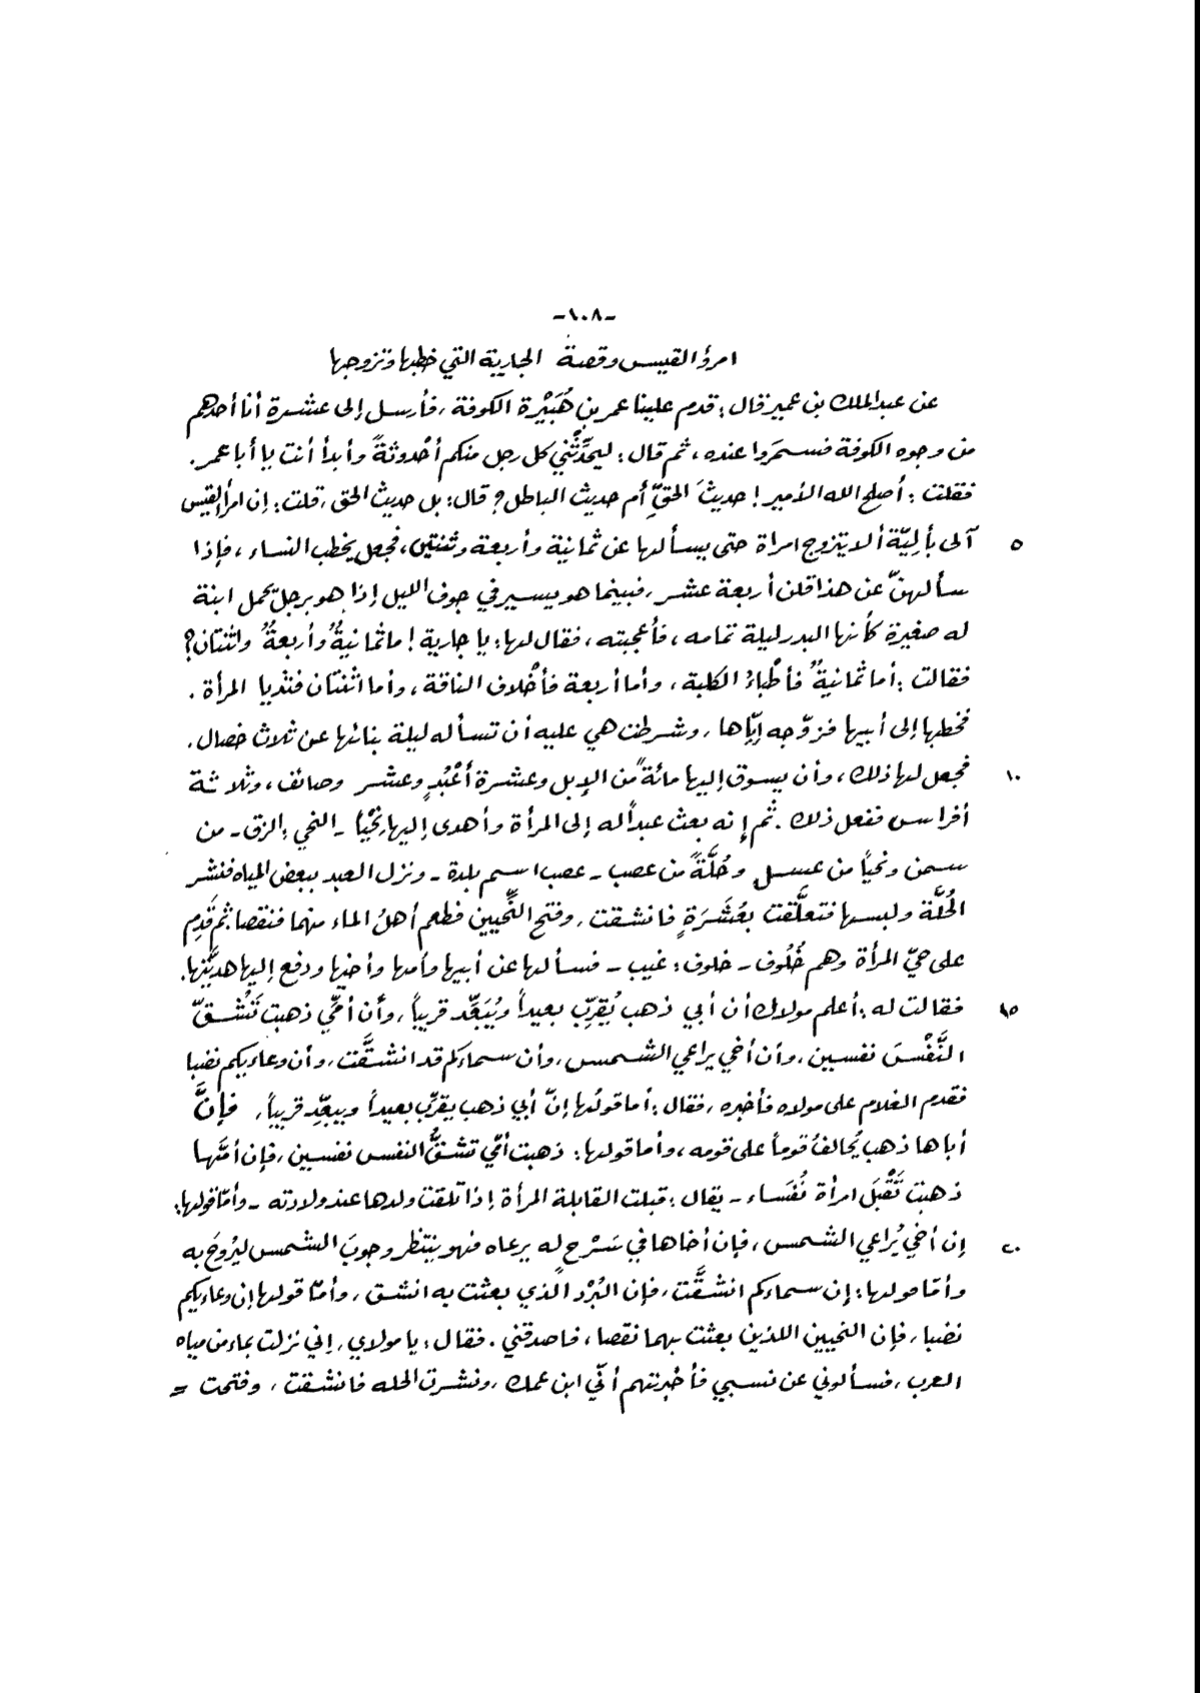 -١٠٨-
امرؤ القيس وقصة الجارية التي خطبها وتزوجها
عن عبد الملك بن عمير قال: قدم علينا عمر بن هُبَيْرة الكوفة، فأرسل إلى عشرة أنا أحدهم
من وجوه الكوفة فسمَروا عنده، ثم قال: ليحدّثْني كل رجل منكم أُحدوثةً وأبدأ أنت يا أبا عمر.
فقلت: أصلح الله الأمير! حديثَ الحقِّ أم حديث الباطل؟ قال: بل حديث الحق، قلت: إن امرأ القيس
٥ آلى بأَلِيّة ألا يتزوج امرأة حتى يسألها عن ثمانية وأربعة وثنتين، فجعل يخطب النساء، فإذا
سألهنّ عن هذا قلن أربعة عشر، فبينما هو يسير في جوف الليل إذا هو برجل يحمل ابنة
له صغيرة كأنها البدر ليلة تمامه، فأعجبته، فقال لها: يا جارية! ما ثمانيةٌ وأربعةٌ واثنتان؟
فقالت: أما ثمانيةٌ فأطْباءُ الكلبة، وأما أربعة فأخْلاف الناقة، وأما اثنتان فثديا المرأة.
فخطبها إلى أبيها فزوّجه إيّاها، وشرطت هي عليه أن تسأله ليلة بنائها عن ثلاث خصال.
١٠ فجعل لها ذلك، وأن يسوق إليها مائةً من الإبل وعشرة أَعْبُدٍ وعشر وصائف، وثلاثة
أفراس ففعل ذلك. ثم إنه بعث عبداً له إلى المرأة وأهدى إليها نِحْياً - النحي: الزق - من
سمن ونحياً من عسل وحُلّةً من عصب - عصب اسم بلدة - ونزل العبد ببعض المياه فنشر
الحُلّة ولبسها فتعلَّقت بعُشَرَةٍ فانشقت، وفتح النِّحيين فطعم أهلُ الماء منهما فنقصا ثم قَدِم
على حيّ المرأة وهم خُلُوف - خلوف: غيب - فسألها عن أبيها وأمها وأخيها ودفع إليها هديّتها.
١٥ فقالت له: أعلم مولاك أن أبي ذهب يُقرِّب بعيداً ويُبَعِّد قريباً، وأن أمِّي ذهبت تَشُقّ
النَّفْسَ نفسين، وأن أخي يراعي الشمس، وأن سماءكم قد انشقَّت، وأن وعاءيكم نضبا
فقدم الغلام على مولاه فأخبره، فقال: أما قولُها إنّ أبي ذهب يقرِّب بعيداً ويبعِّد قريباً، فإنَّ
أباها ذهب يُحالفُ قوماً على قومه، وأما قولها: ذهبت أمّي تشقُّ النفس نفسين، فإن أمَّها
ذهبت تَقْبَل امرأة نُفَساء - يقال: قبلت القابلة المرأة إذا تلقت ولدها عند ولادته - وأمّا قولها:
٢٠ إن أخي يُراعي الشمس، فإن أخاها في سَرْحٍ له يرعاه فهو ينتظر وجوبَ الشمس ليُروحَ به
وأمّا قولها: إن سماءكم انشقَّت، فإن البُرْد الذي بعثت به انشق، وأمّا قولها إن وعاءيكم
نضبا، فإن النحيين اللذين بعثت بهما نقصا، فاصدقني. فقال: يا مولاي، إني نزلت بماء من مياه
العرب، فسألوني عن نسبي فأخبرتهم أنّي ابن عمك، ونشرت الحله فانشقت، وفتحت =